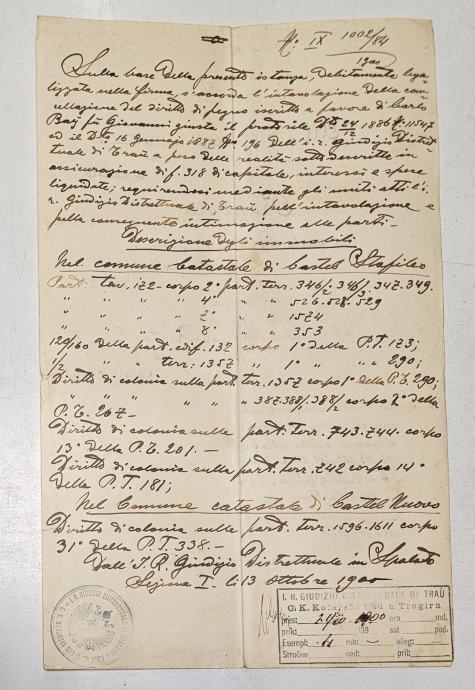 No: IX 1002/84
1900
Sulla base della presente istanza, debitamente lega-
lizzata nella firma, s'accorda l'intavolazione della can-
cellazione del diritto di pegno iscritto a favore di Carlo
fu Giovanni giusta il 24/12 1886 No 11547
ed il Dto 16 gennajo 1887 No 196 dell'i. r. Giudizio Distret-
tuale di Traù a peso delle realità sottodescritte in
assicurazione di f. 318 di capitale, interessi e spese
liquidate; requirendosi mediante gli uniti atti l'i.
r. Giudizio Distrettuale di Traù pell'intavolazione e
pella conseguente intimazione alle parti. —
Descrizione degli immobili
Nel comune catastale di Castel Stafileo
Part: tav. 172 - corpo 2° part. terr. 346/2. 346/3. 347. 349.
" " " 4° " " 526. 528. 529
" " " 7° " " 1574
" " " 8° " " 353
120/160 della part. edif. 132 corpo 1° della P.T. 173;
1/2 " " terr: 1357 " 1° " " 290;
Diritto di colonia sulla part. terr. 1357 corpo 1° della P.T. 290;
" " " " " " 387. 388/1. 388/2 corpo 2° della
P.T. 267 —
Diritto di colonia sulle part. terr. 743. 744. corpo
13° della P.T. 201. —
Diritto di colonia sulla part. terr. 742 corpo 14°
della P.T. 181;
Nel Comune catastale di Castel Nuovo
Diritto di colonia sulle part. terr. 1596. 1611 corpo
31° della P.T. 338. —
Dall'I. R. Giudizio Distrettuale in Spalato
Sezione I. li 13 Ottobre 1900
I. R. GIUDIZIO DISTRETTUALE DI TRAÙ
C. K. Kotarski Sud u Trogiru
pres: 1900 ora md.
prik: 189 sat pod.
Esempl: rub: alleg:
Stručno nad. pril.